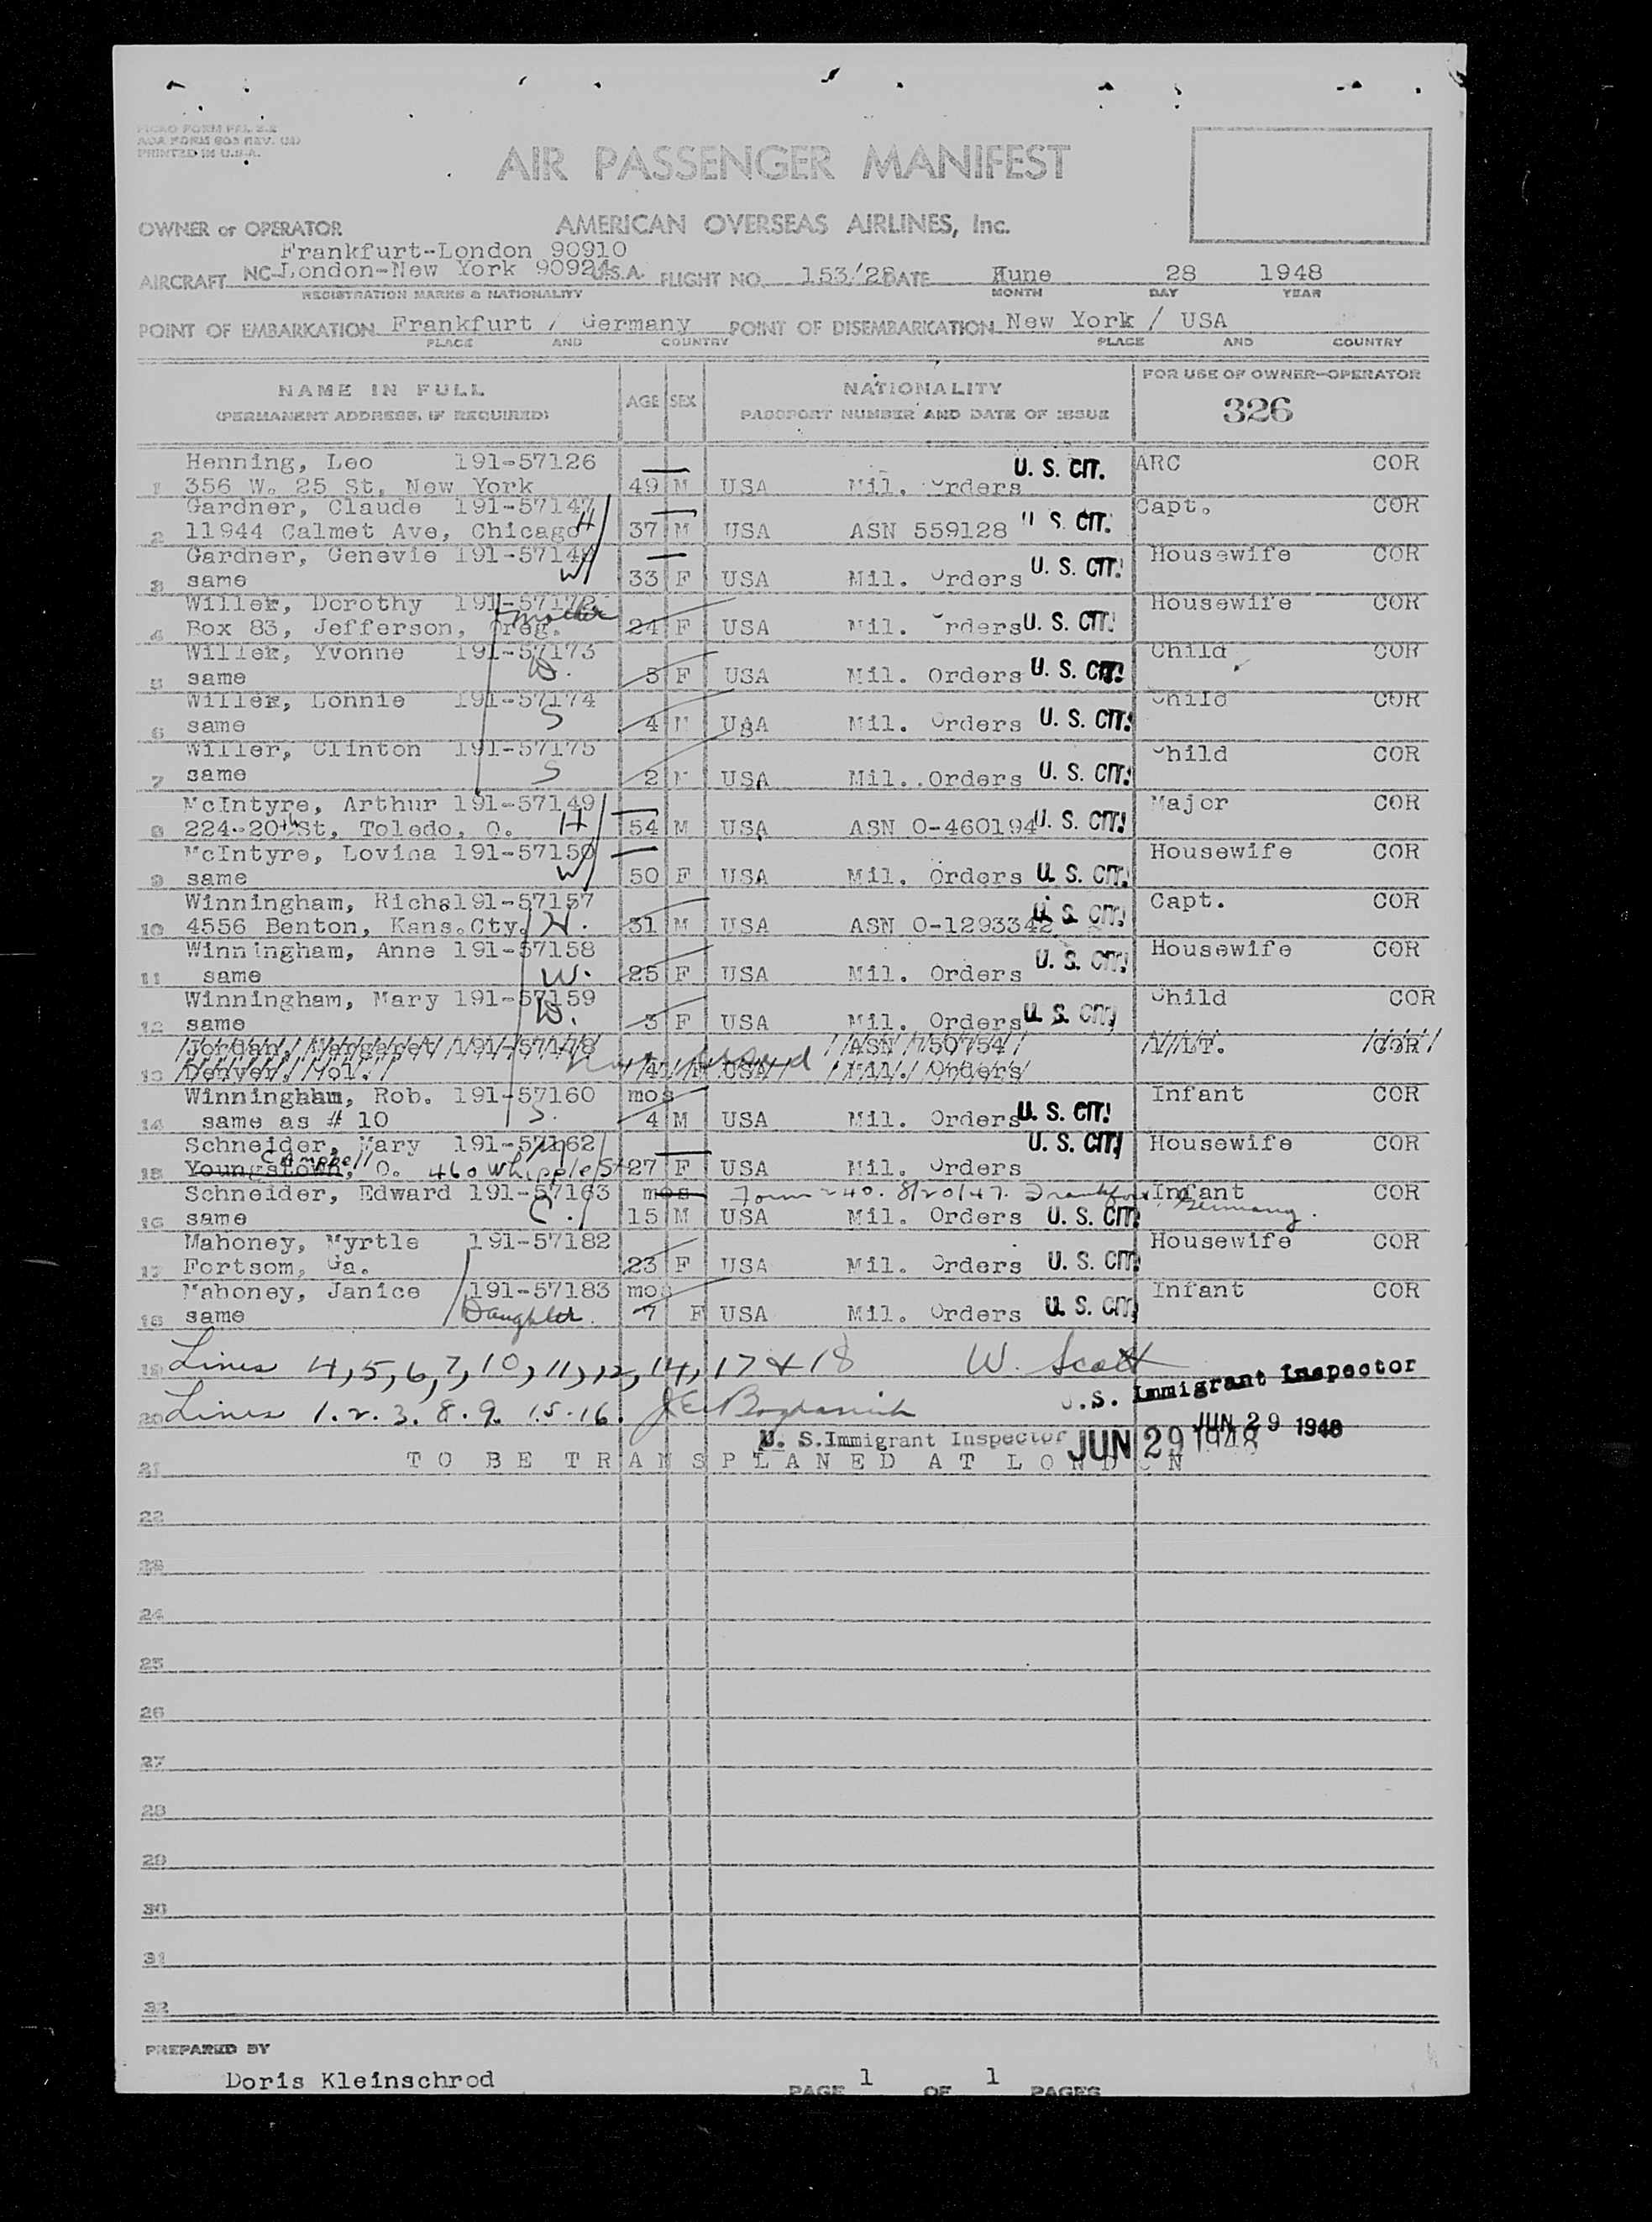 PICAO FORM PAL 2.2
AOA FORM 603 REV. (U)
PRINTED IN U.S.A.
AIR PASSENGER MANIFEST
OWNER or OPERATOR AMERICAN OVERSEAS AIRLINES, Inc.
Frankfurt-London 90910
AIRCRAFT NC-London-New York 90924 U.S.A. FLIGHT NO. 153/28 DATE June 28 1948
REGISTRATION MARKS & NATIONALITY MONTH DAY YEAR
POINT OF EMBARKATION Frankfurt / Germany POINT OF DISEMBARKATION New York / USA
PLACE AND COUNTRY PLACE AND COUNTRY
NAME IN FULL AGE SEX NATIONALITY FOR USE OF OWNER-OPERATOR
(PERMANENT ADDRESS, IF REQUIRED) PASSPORT NUMBER AND DATE OF ISSUE 326
Henning, Leo 191-57126 U. S. CIT. ARC COR
1 356 W. 25 St, New York 49 M USA Mil. Orders
Gardner, Claude 191-57147 Capt. COR
2 11944 Calmet Ave, Chicago H 37 M USA ASN 559128 U S. CIT.
Gardner, Genevie 191-57148 Housewife COR
3 same W 33 F USA Mil. Orders U. S. CIT.
Willer, Dorothy 191-57172 Housewife COR
4 Box 83, Jefferson, Oreg. mother 24 F USA Mil. Orders U. S. CIT.
Willer, Yvonne 191-57173 Child COR
5 same D. 5 F USA Mil. Orders U. S. CIT.
Willer, Lonnie 191-57174 Child COR
6 same S 4 M USA Mil. Orders U. S. CIT.
Willer, Clinton 191-57175 Child COR
7 same S 2 M USA Mil. Orders U. S. CIT.
McIntyre, Arthur 191-57149 Major COR
8 224-20th St, Toledo, O. H 54 M USA ASN O-460194 U. S. CIT.
McIntyre, Lovina 191-57150 Housewife COR
9 same W 50 F USA Mil. Orders U. S. CIT.
Winningham, Richa 191-57157 Capt. COR
10 4556 Benton, Kans.Cty. H. 31 M USA ASN O-1293342 U. S. CIT.
Winningham, Anne 191-57158 Housewife COR
11 same W. 25 F USA Mil. Orders U. S. CIT.
Winningham, Mary 191-57159 Child COR
12 same D. 3 F USA Mil. Orders U. S. CIT.
Jordan, Margaret 191-57178 ASN 750754 1/LT. COR
13 Denver, Col. Not Aboard 41 F USA Mil. Orders
Winningham, Rob. 191-57160 mos Infant COR
14 same as # 10 S. 4 M USA Mil. Orders U. S. CIT.
Schneider, Mary 191-57162 U. S. CIT. Housewife COR
15 Youngstown, Campbell O. 460 Whipple St 27 F USA Mil. Orders
Schneider, Edward 191-57163 mos Form 240. 8/20/47. Frankfurt Germany. Infant COR
16 same C. 15 M USA Mil. Orders U. S. CIT.
Mahoney, Myrtle 191-57182 Housewife COR
17 Fortsom, Ga. 23 F USA Mil. Orders U. S. CIT.
Mahoney, Janice 191-57183 mos Infant COR
18 same Daughter. 7 F USA Mil. Orders U. S. CIT.
19 Lines 4,5,6,7,10,11,12,14,17 & 18 W. Scott
U.S. Immigrant Inspector
20 Lines 1.2.3.8.9. 15.16.
JUN 29 1948
U. S. Immigrant Inspector JUN 29 1948
21 TO BE TRANSPLANED AT LONDON
22
23
24
25
26
27
28
29
30
31
32
PREPARED BY
Doris Kleinschrod
PAGE 1 OF 1 PAGES